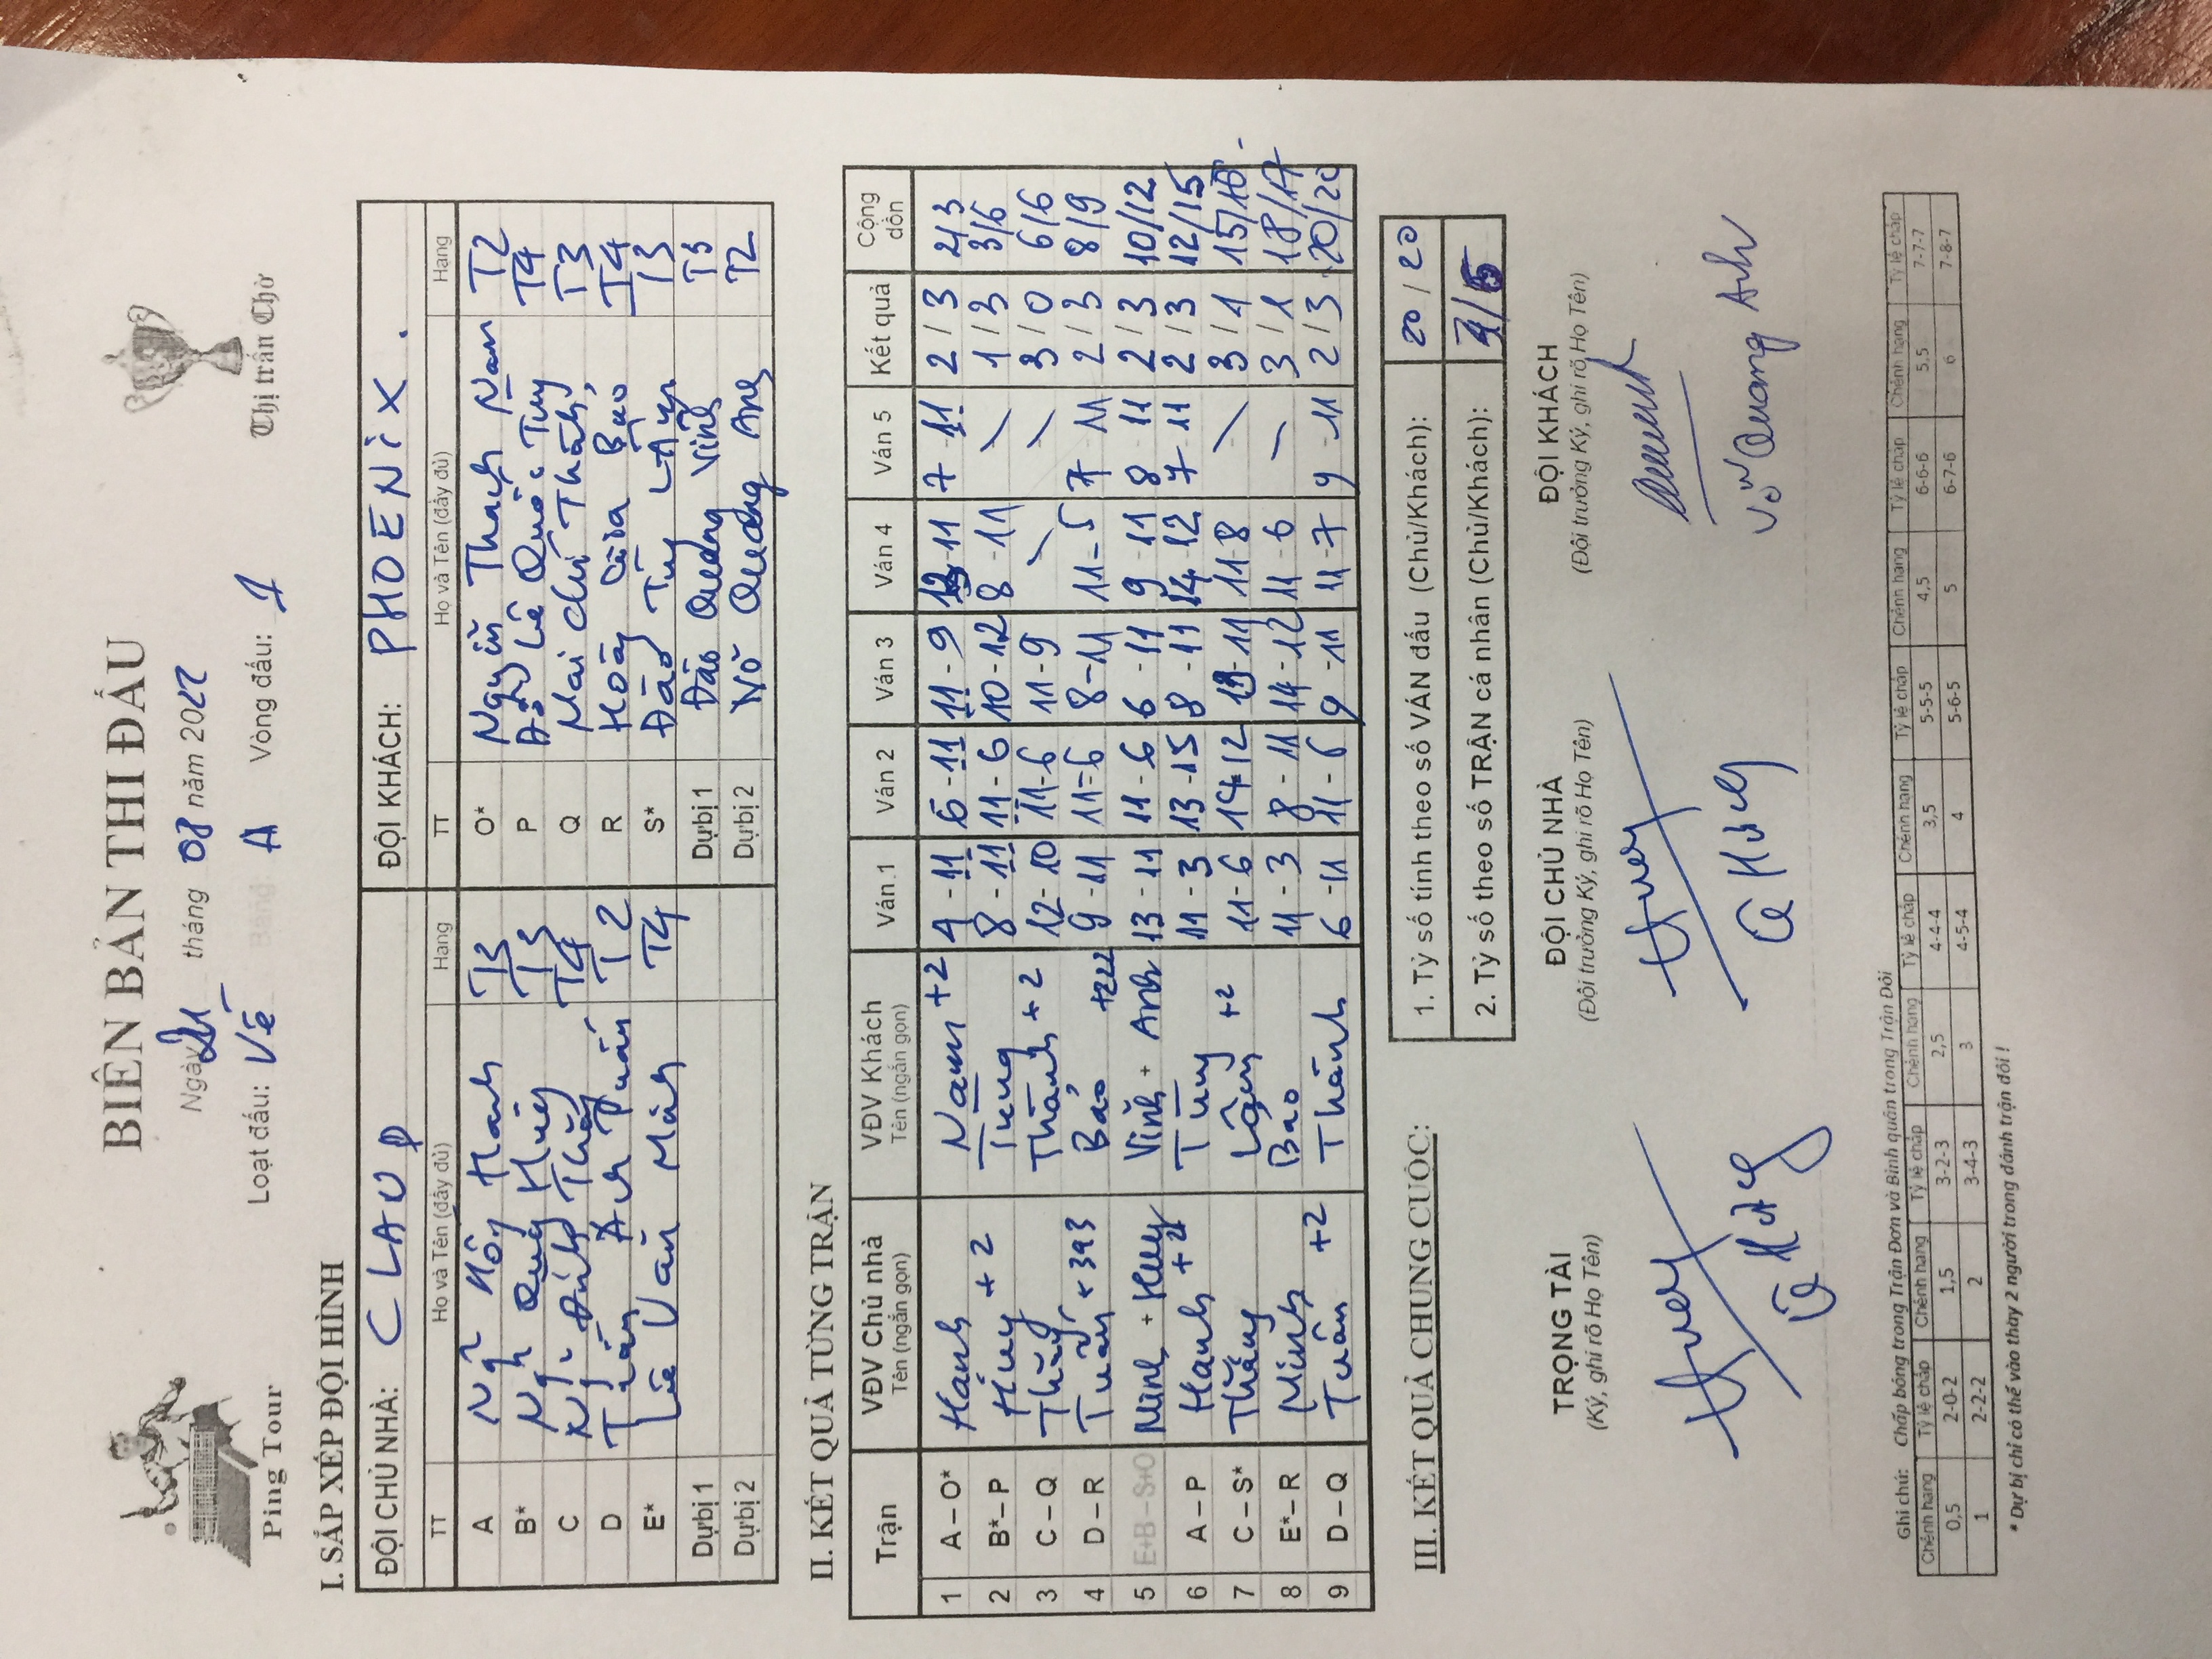 BIÊN BẢN THI ĐẤU
Ping Tour
Thị trấn Chờ
Ngày 21 tháng 08 năm 2022
Loạt đấu: Về Bảng: A Vòng đấu: 1
I. SẮP XẾP ĐỘI HÌNH
ĐỘI CHỦ NHÀ: ĐỘI KHÁCH: PHOENIX.
TT Họ và Tên (đầy đủ) Hạng TT Họ và Tên (đầy đủ) Hạng
A Hạnh T3 O* Nguyễn Thanh Nam T2
B* T3 P Lê Quốc Tung T4
C T4 Q Mai Chí Thành T3
D Anh Tuấn T2 R Bảo T4
E* Lê Văn T4 S* Đào Tùng Lâm T3
Dự bị 1 Dự bị 1 Đào Quang Vinh T3
Dự bị 2 Dự bị 2 Võ Quang Anh T2
II. KẾT QUẢ TỪNG TRẬN
Trận VĐV Chủ nhà Tên (ngắn gọn) VĐV Khách Tên (ngắn gọn) Ván 1 Ván 2 Ván 3 Ván 4 Ván 5 Kết quả Cộng dồn
1 A – O* Hạnh Nam +2 4 - 11 6 - 11 11 - 9 11 7 - 11 2 / 3 2/3
2 B* – P Hùng + 2 Tung 8 - 11 11 - 6 10 - 12 8 - 11 \ 1 / 3 3/6
3 C – Q Thắng Thành + 2 12 - 10 11 - 6 11 - 9 \ \ 3 / 0 6/6
4 D – R Tuấn + 393 Bảo +222 9 - 11 11 - 6 8 - 11 11 - 5 7 11 2 / 3 8/9
5 E+B – S+O Minh + Huy Vinh + Anh 13 - 11 11 - 6 6 - 11 9 - 11 8 - 11 2 / 3 10/12
6 A – P Hạnh + 2 Tung 11 - 3 13 - 15 8 - 11 14 - 12 7 - 11 2 / 3 12/15
7 C – S* Thắng Lâm +2 11 - 6 14 - 12 - 11 11 - 8 \ 3 / 1 15/16
8 E* – R Minh Bao 11 - 3 8 - 11 14 - 12 11 - 6 \ 3 / 1 18/17
9 D – Q Tuấn +2 Thành 6 - 11 11 - 6 9 - 11 11 - 7 9 - 11 2 / 3 20/20
III. KẾT QUẢ CHUNG CUỘC:
1. Tỷ số tính theo số VÁN đấu (Chủ/Khách): 20 / 20
2. Tỷ số theo số TRẬN cá nhân (Chủ/Khách):
TRỌNG TÀI ĐỘI CHỦ NHÀ ĐỘI KHÁCH
(Ký, ghi rõ Họ Tên) (Đội trưởng Ký, ghi rõ Họ Tên) (Đội trưởng Ký, ghi rõ Họ Tên)
Quang Anh
Ghi chú: Chấp bóng trong Trận Đơn và Bình quân trong Trận Đôi
Chênh hạng Tỷ lệ chấp Chênh hạng Tỷ lệ chấp Chênh hạng Tỷ lệ chấp Chênh hạng Tỷ lệ chấp Chênh hạng Tỷ lệ chấp Chênh hạng Tỷ lệ chấp
0,5 2-0-2 1,5 3-2-3 2,5 4-4-4 3,5 5-5-5 4,5 6-6-6 5,5 7-7-7
1 2-2-2 2 3-4-3 3 4-5-4 4 5-6-5 5 6-7-6 6 7-8-7
* Dự bị chỉ có thể vào thay 2 người trong đánh trận đôi !